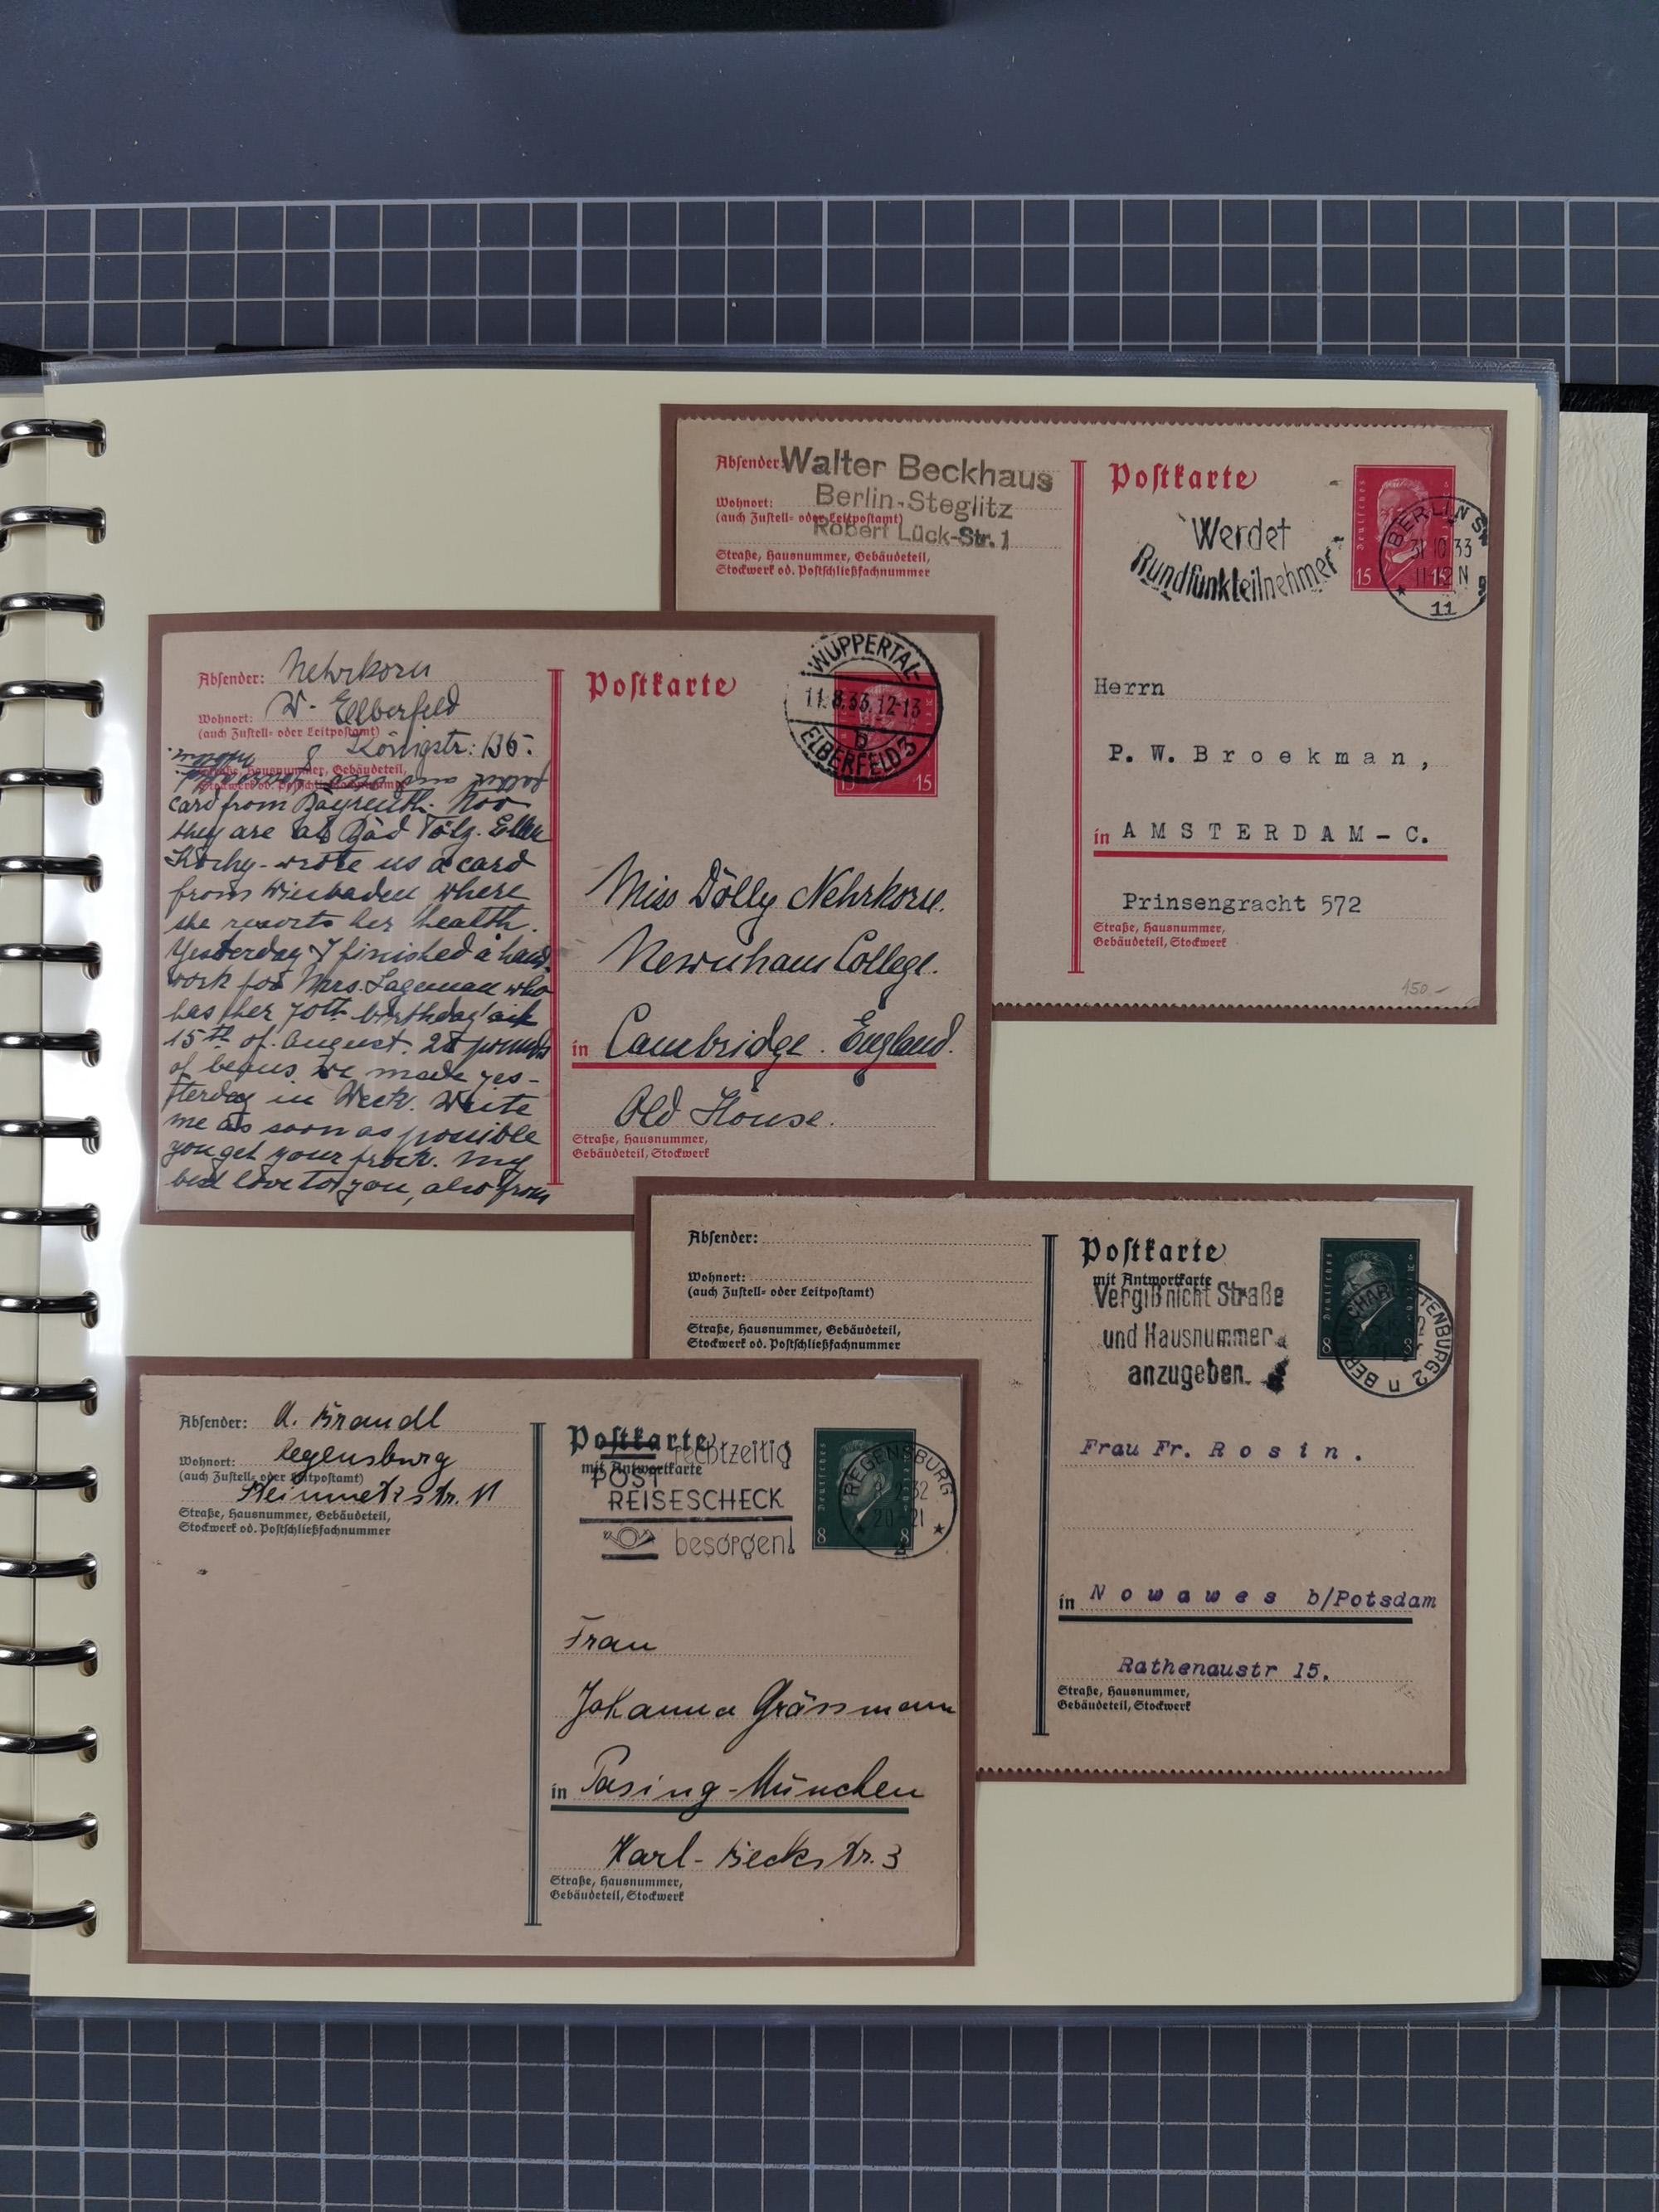 Absender: Walter Beckhaus
Wohnort: Berlin-Steglitz
(auch Zustell- oder Leitpostamt)
Robert Lück-Str. 1
Straße, Hausnummer, Gebäudeteil,
Stockwerk od. Postschließfachnummer
Postkarte
Werdet
Rundfunkteilnehmer
Deutsches
15 15
BERLIN S
31 10 33
11-12 N
11
Herrn
P. W. Broekman,
in AMSTERDAM-C.
Prinsengracht 572
Straße, Hausnummer,
Gebäudeteil, Stockwerk
150.-
Absender: Nehrkorn
Wohnort: W. Elberfeld
(auch Zustell- oder Leitpostamt)
Königstr: 136.
Straße, Hausnummer, Gebäudeteil,
Stockwerk od. Postschließfachnummer
card from Bayreuth. Now
they are at Bad Tölz. Ellen
wrote us a card
from Wiesbaden where
she resorts her health.
Yesterday I finished a hand
work for Mrs. Lageman who
has her 70th birthday
15th of August. 28 pounds
of beans we made yes-
terday in Weck. Write
me as soon as possible
you get your frock. My
best love to you, also from
Postkarte
WUPPERTAL-
11.8.33.12-13
b
ELBERFELD 3
15 15
Miss Dolly Nehrkorn.
Newnham College.
in Cambridge. England.
Old House.
Straße, Hausnummer,
Gebäudeteil, Stockwerk
Absender:
Wohnort:
(auch Zustell- oder Leitpostamt)
Straße, Hausnummer, Gebäudeteil,
Stockwerk od. Postschließfachnummer
Postkarte
mit Antwortkarte
Vergiß nicht Straße
und Hausnummer
anzugeben.
Deutsches
8 8
BERLIN-CHARLOTTENBURG 2 n
Frau Fr. Rosin.
in Nowawes b/Potsdam
Rathenaustr 15.
Straße, Hausnummer,
Gebäudeteil, Stockwerk
Absender: A. Brandl
Wohnort: Regensburg
(auch Zustell- oder Leitpostamt)
Steinmetzstr. 11
Straße, Hausnummer, Gebäudeteil,
Stockwerk od. Postschließfachnummer
Postkarte
mit Antwortkarte
rechtzeitig
POST
REISESCHECK
besorgen!
Deutsches
8 8
REGENSBURG
2 32
20-21
2
Frau
Johanna Grässmann
in Pasing-München
Karl-Beckstr. 3
Straße, Hausnummer,
Gebäudeteil, Stockwerk